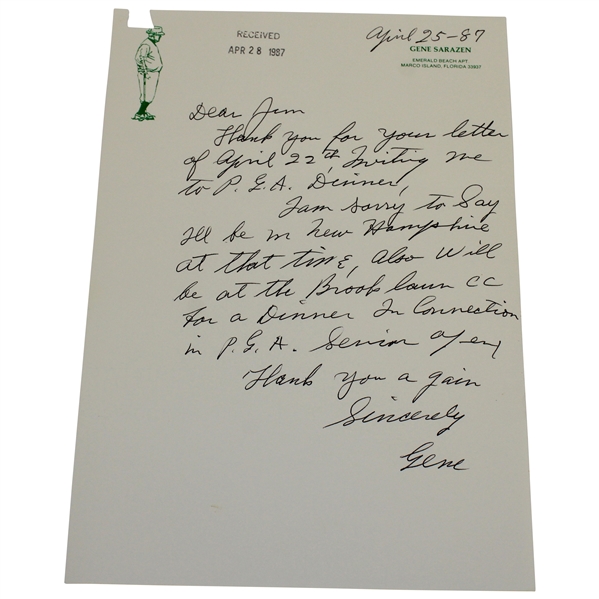 RECEIVED
APR 28 1987
April 25-87
GENE SARAZEN
EMERALD BEACH APT.
MARCO ISLAND, FLORIDA 33937
Dear Jim
Thank you for your letter
of April 22nd, Inviting me
to P.G.A. Dinner,
I am sorry to Say
I'll be in New Hampshire
at that time, also will
be at the Brook lawn CC
for a Dinner In Connection
in P.G.A. Senior open
Thank you a gain
Sincerely
Gene